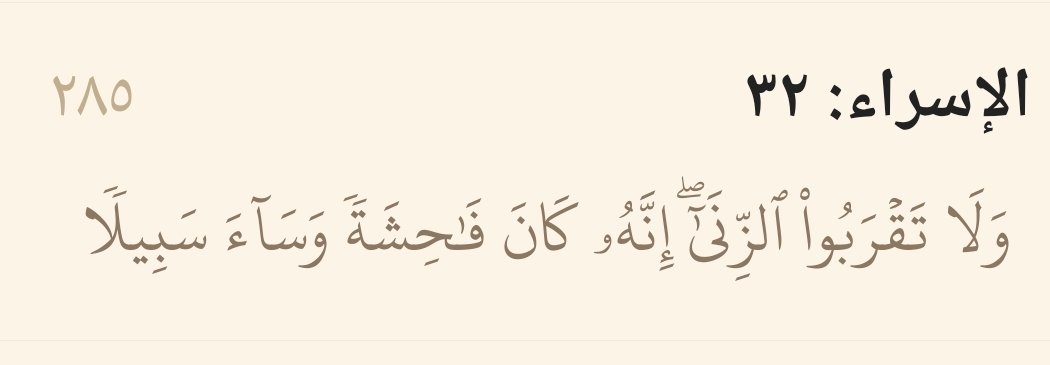 الإسراء: ٣٢ ٢٨٥
وَلَا تَقْرَبُوا۟ ٱلزِّنَىٰٓ ۖ إِنَّهُۥ كَانَ فَـٰحِشَةً وَسَآءَ سَبِيلًا